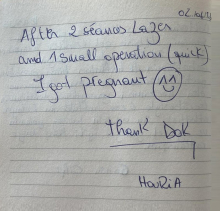 After 2 séances Lazer
and 1 small operation (quick)
I got pregnant
thank Dok
MaRiA